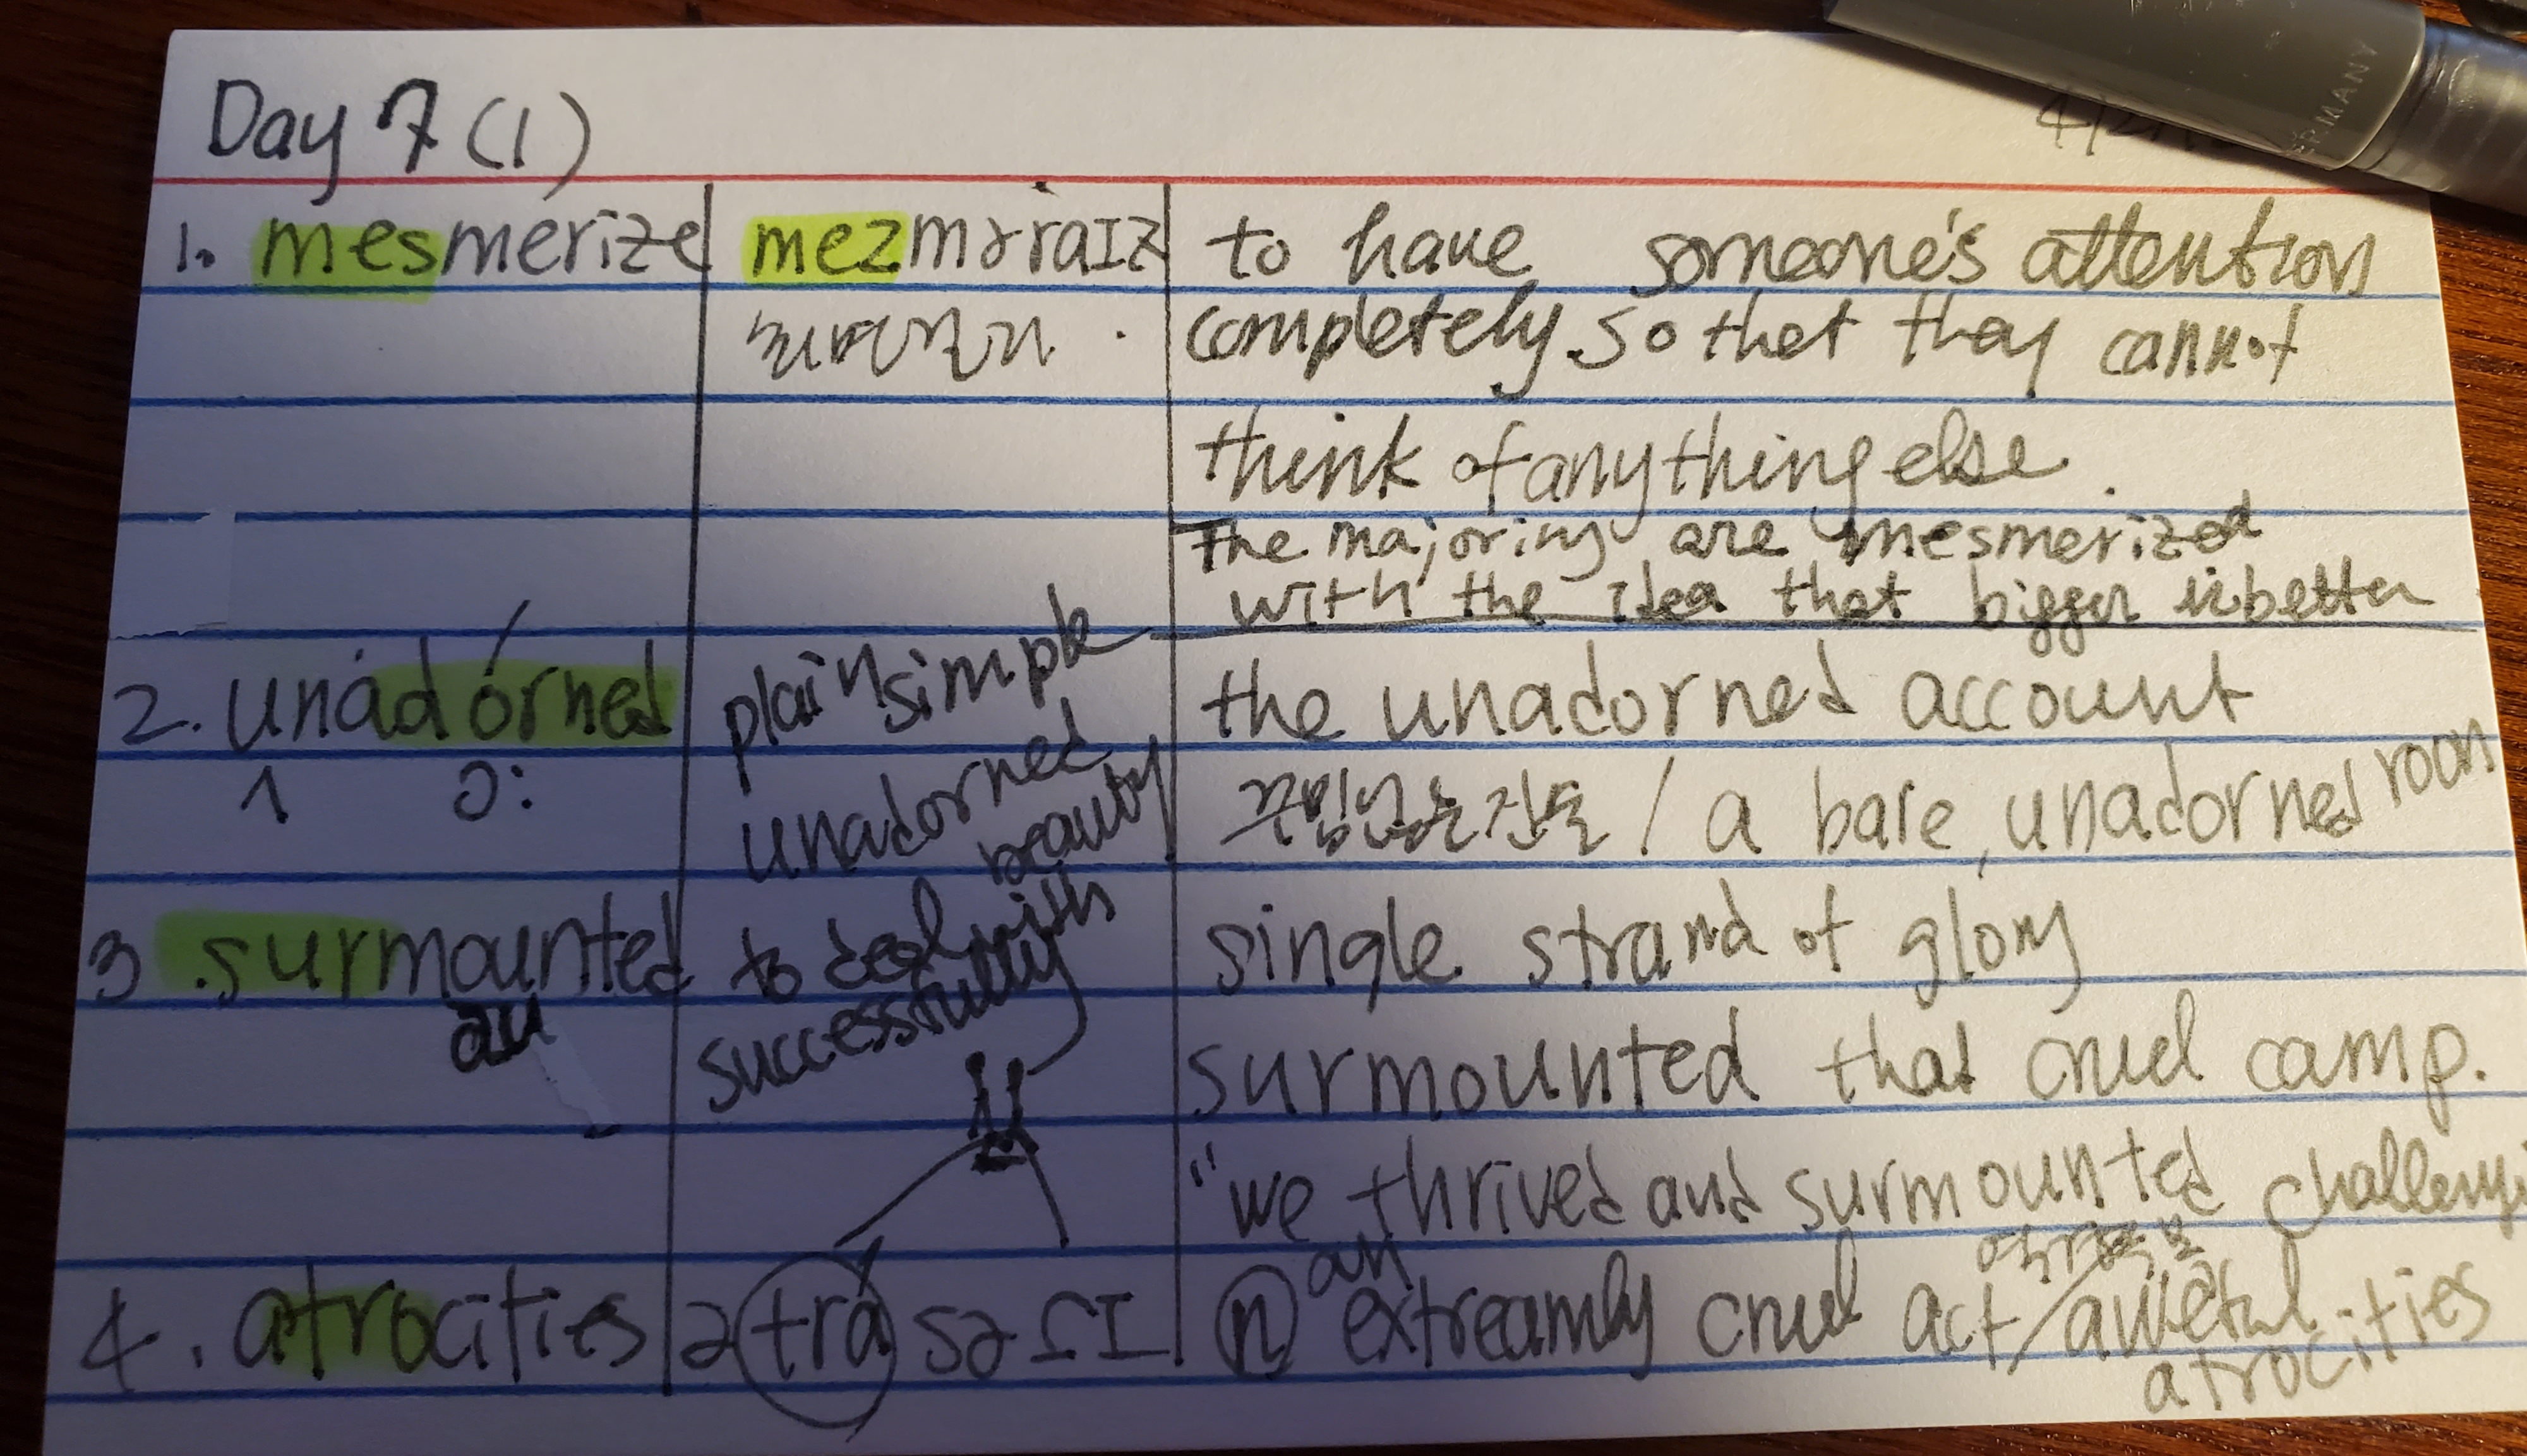 Day 7 (1)
1. mesmerize mezməraIz to have someone's attention
completely so that they cannot
think of anything else.
The majoriny are mesmerized
with the idea that bigger is better
2. unadorned plain simple the unadorned account
ʌ ɔ: unadorned beauty / a bare, unadorned room
3. surmounted to deal with successfully single strand of glory
au
surmounted that cruel camp.
"we thrived and surmounted
4. atrocities ətrá ⓝ an extreamly cruel act /
atrocities
GERMANY